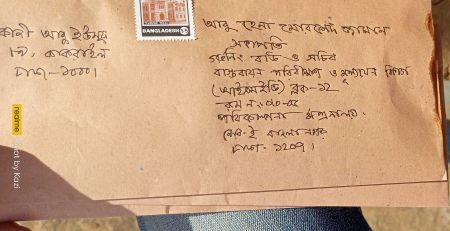 কাজী আবু ইউসুফ
কাকরাইল
ঢাকা-১০০০।
BANGLADESH
আবু হেনা মোরশেদ জামান
সভাপতি
গভর্নিং বডি ও সচিব
বাস্তবায়ন পরিবীক্ষণ ও মূল্যায়ন বিভাগ
(আইএমইডি) ব্লক-১২
রুম নং
পরিকল্পনা মন্ত্রণালয়।
শেরে-ই বাংলা নগর
ঢাকা-১২০৭।
realme Shot by Kazi